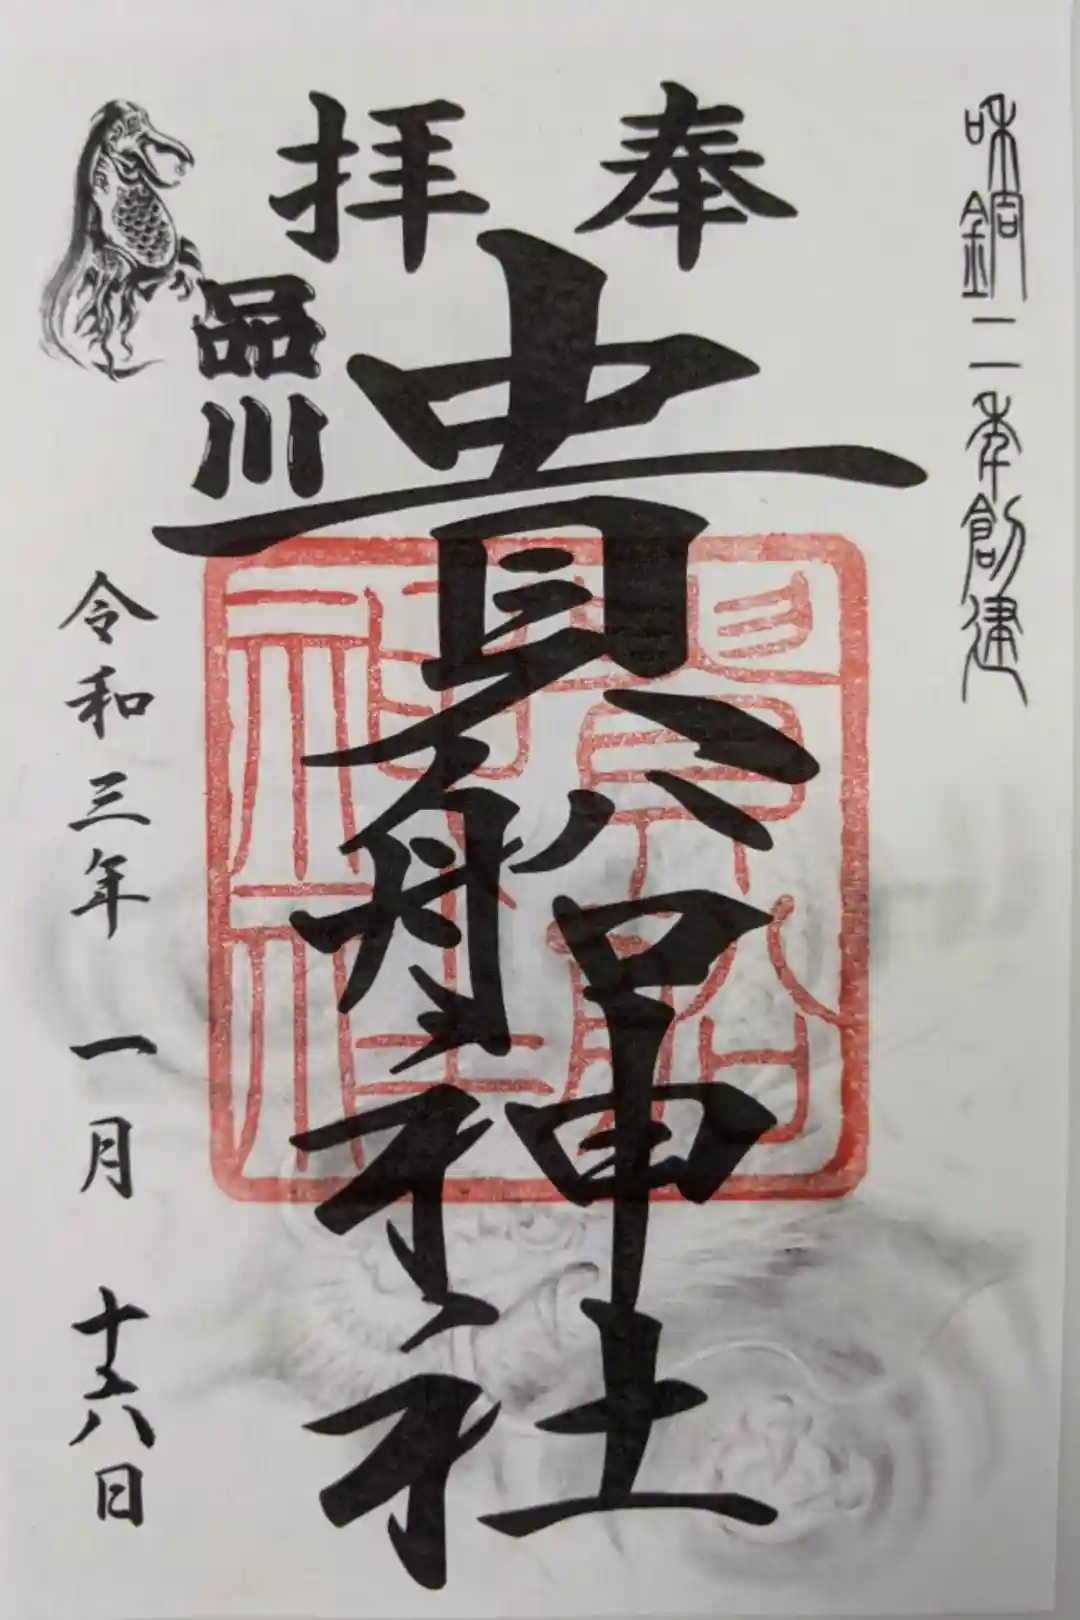 和銅二年創建
奉拝
貴船神社
品川
令和三年 一月 十六日
貴船神社